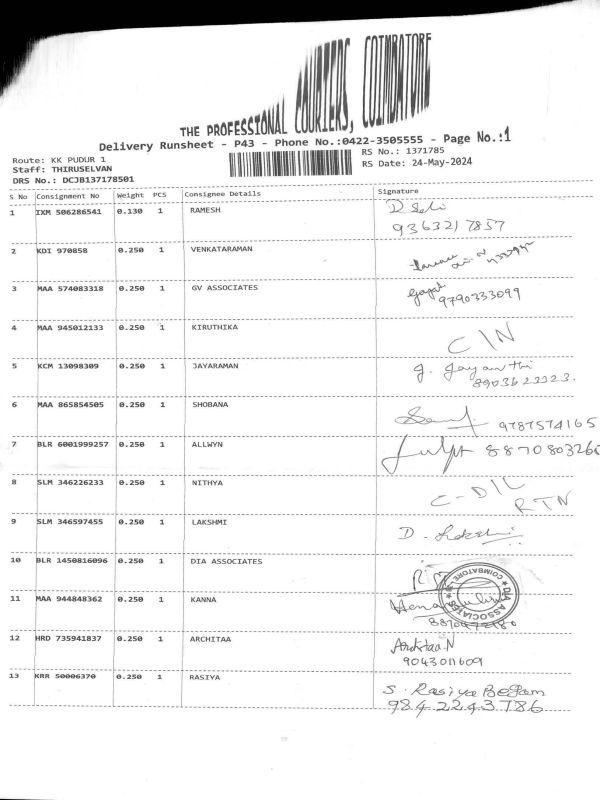 THE PROFESSIONAL COURIERS, COIMBATORE
Delivery Runsheet - P43 - Phone No.:0422-3505555 - Page No.:1
Route: KK PUDUR 1
RS No.: 1371785
Staff: THIRUSELVAN
RS Date: 24-May-2024
DRS No.: DCJB137178501
S No Consignment No Weight PCS Consignee Details Signature
1 IXM 506286541 0.130 1 RAMESH
9363217857
2 KDI 970858 0.250 1 VENKATARAMAN
3 MAA 574083318 0.250 1 GV ASSOCIATES Gopal
9790333099
4 MAA 945012133 0.250 1 KIRUTHIKA C IN
5 KCM 13098309 0.250 1 JAYARAMAN J. Jayanthi
8903623323.
6 MAA 865854505 0.250 1 SHOBANA 9787574165
7 BLR 6001999257 0.250 1 ALLWYN 887080326
8 SLM 346226233 0.250 1 NITHYA C-DIL
RTN
9 SLM 346597455 0.250 1 LAKSHMI D.
10 BLR 1450816096 0.250 1 DIA ASSOCIATES DIA ASSOCIATES COIMBATORE
11 MAA 944848362 0.250 1 KANNA
12 HRD 735941837 0.250 1 ARCHITAA Architaa N
9043011609
13 KRR 50006370 0.250 1 RASIYA S. Rasiya Begam
9842243786